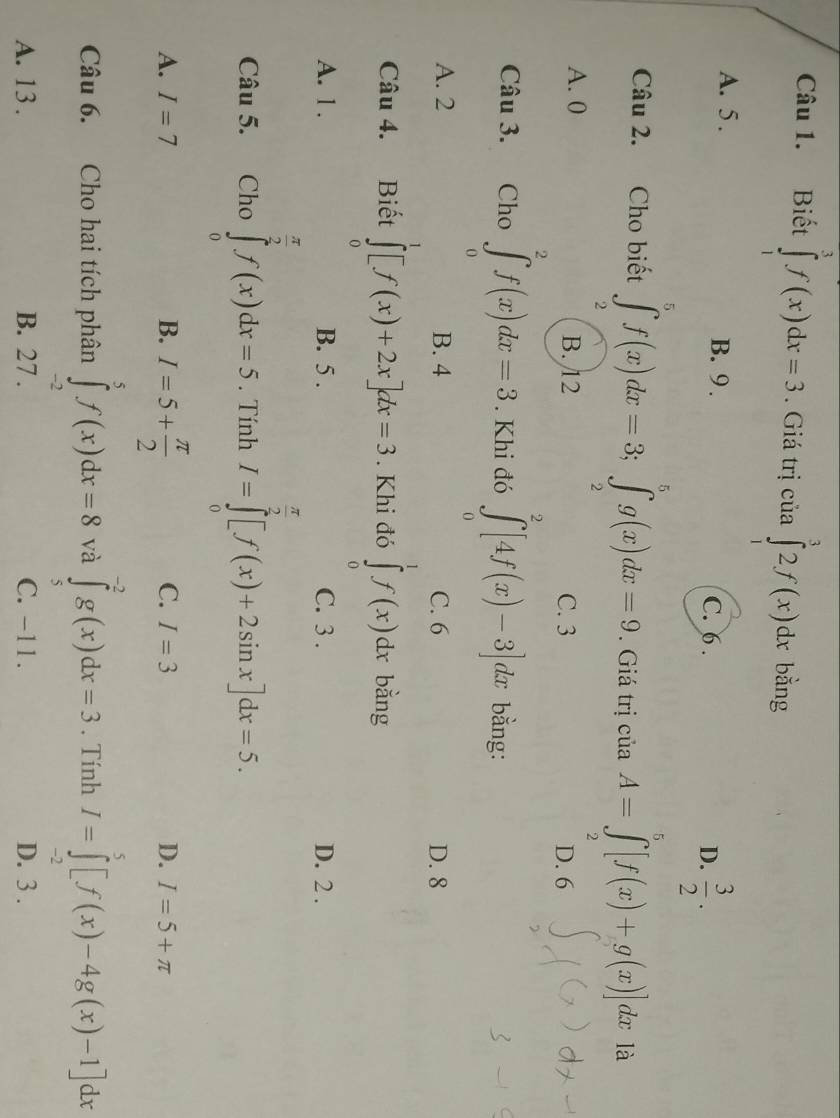 Câu 1. Biết ∫₁³ f(x)dx = 3. Giá trị của ∫₁³ 2f(x)dx bằng
A. 5. B. 9. C. 6. D. 3/2.
Câu 2. Cho biết ∫₂⁵ f(x)dx = 3; ∫₂⁵ g(x)dx = 9. Giá trị của A = ∫₂⁵ [f(x)+g(x)]dx là
A. 0 B. 12 C. 3 D. 6
Câu 3. Cho ∫₀² f(x)dx = 3. Khi đó ∫₀² [4f(x)−3]dx bằng:
A. 2 B. 4 C. 6 D. 8
Câu 4. Biết ∫₀¹ [f(x)+2x]dx = 3. Khi đó ∫₀¹ f(x)dx bằng
A. 1. B. 5. C. 3. D. 2.
Câu 5. Cho ∫₀^(π/2) f(x)dx = 5. Tính I = ∫₀^(π/2) [f(x)+2sin x]dx = 5.
A. I = 7 B. I = 5 + π/2 C. I = 3 D. I = 5 + π
Câu 6. Cho hai tích phân ∫₋₂⁵ f(x)dx = 8 và ∫₅⁻² g(x)dx = 3. Tính I = ∫₋₂⁵ [f(x)−4g(x)−1]dx
A. 13. B. 27. C. −11. D. 3.